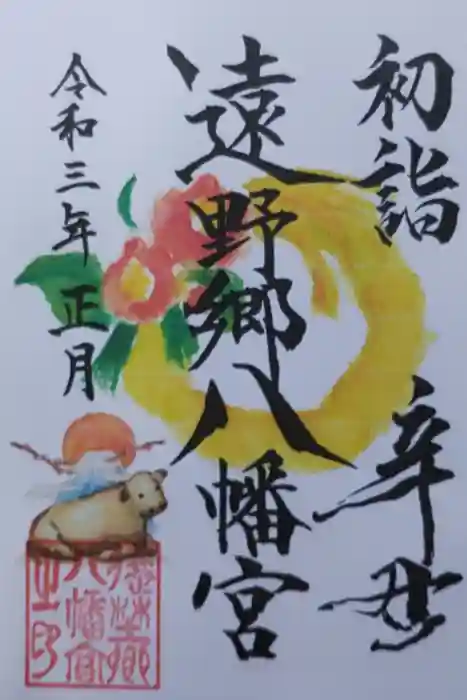 初詣 辛丑
遠野郷八幡宮
令和三年 正月
遠野郷
八幡宮
之印